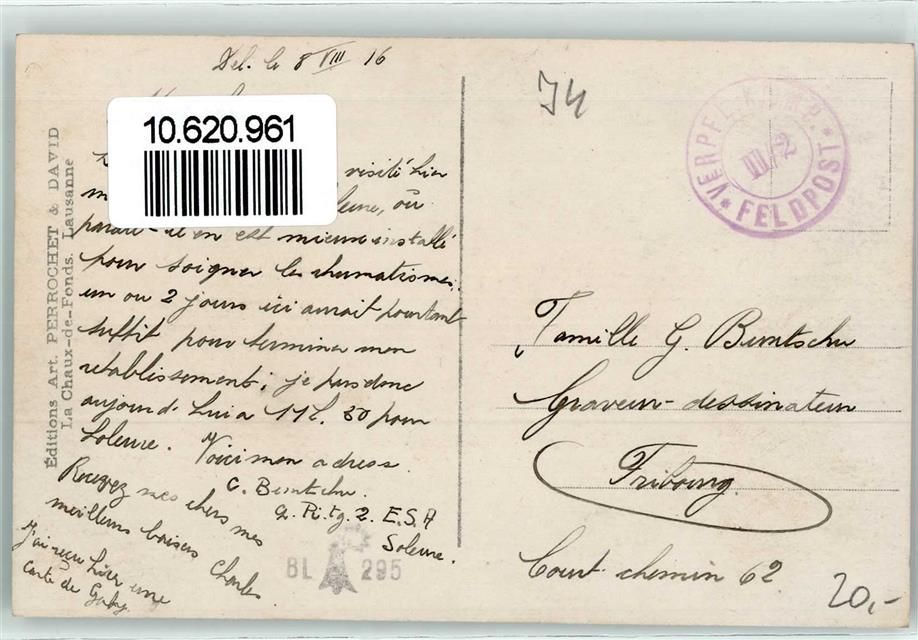 Del. le 8 VIII 16
10.620.961
visité hier
où
paraît-il on est mieux installé
pour soigner les rhumatismes.
un ou 2 jours ici aurait pourtant
suffit pour terminer mon
rétablissement; je pars donc
aujourd'hui à 11h. 30 pour
Soleure. Voici mon adress.
C. Bemtschu.
2. E.S.A
Soleure.
Recevez mes chers mes
meilleurs baisers Charles
J'ai reçu hier une
carte de Gaby.
Éditions Art. PERROCHET & DAVID
La Chaux-de-Fonds. Lausanne
BL 295
J4
VERPFL. KOMP.
III/2
* FELDPOST *
Famille G. Bemtschu
Graveur-dessinateur
Fribourg.
Court chemin 62
20,-